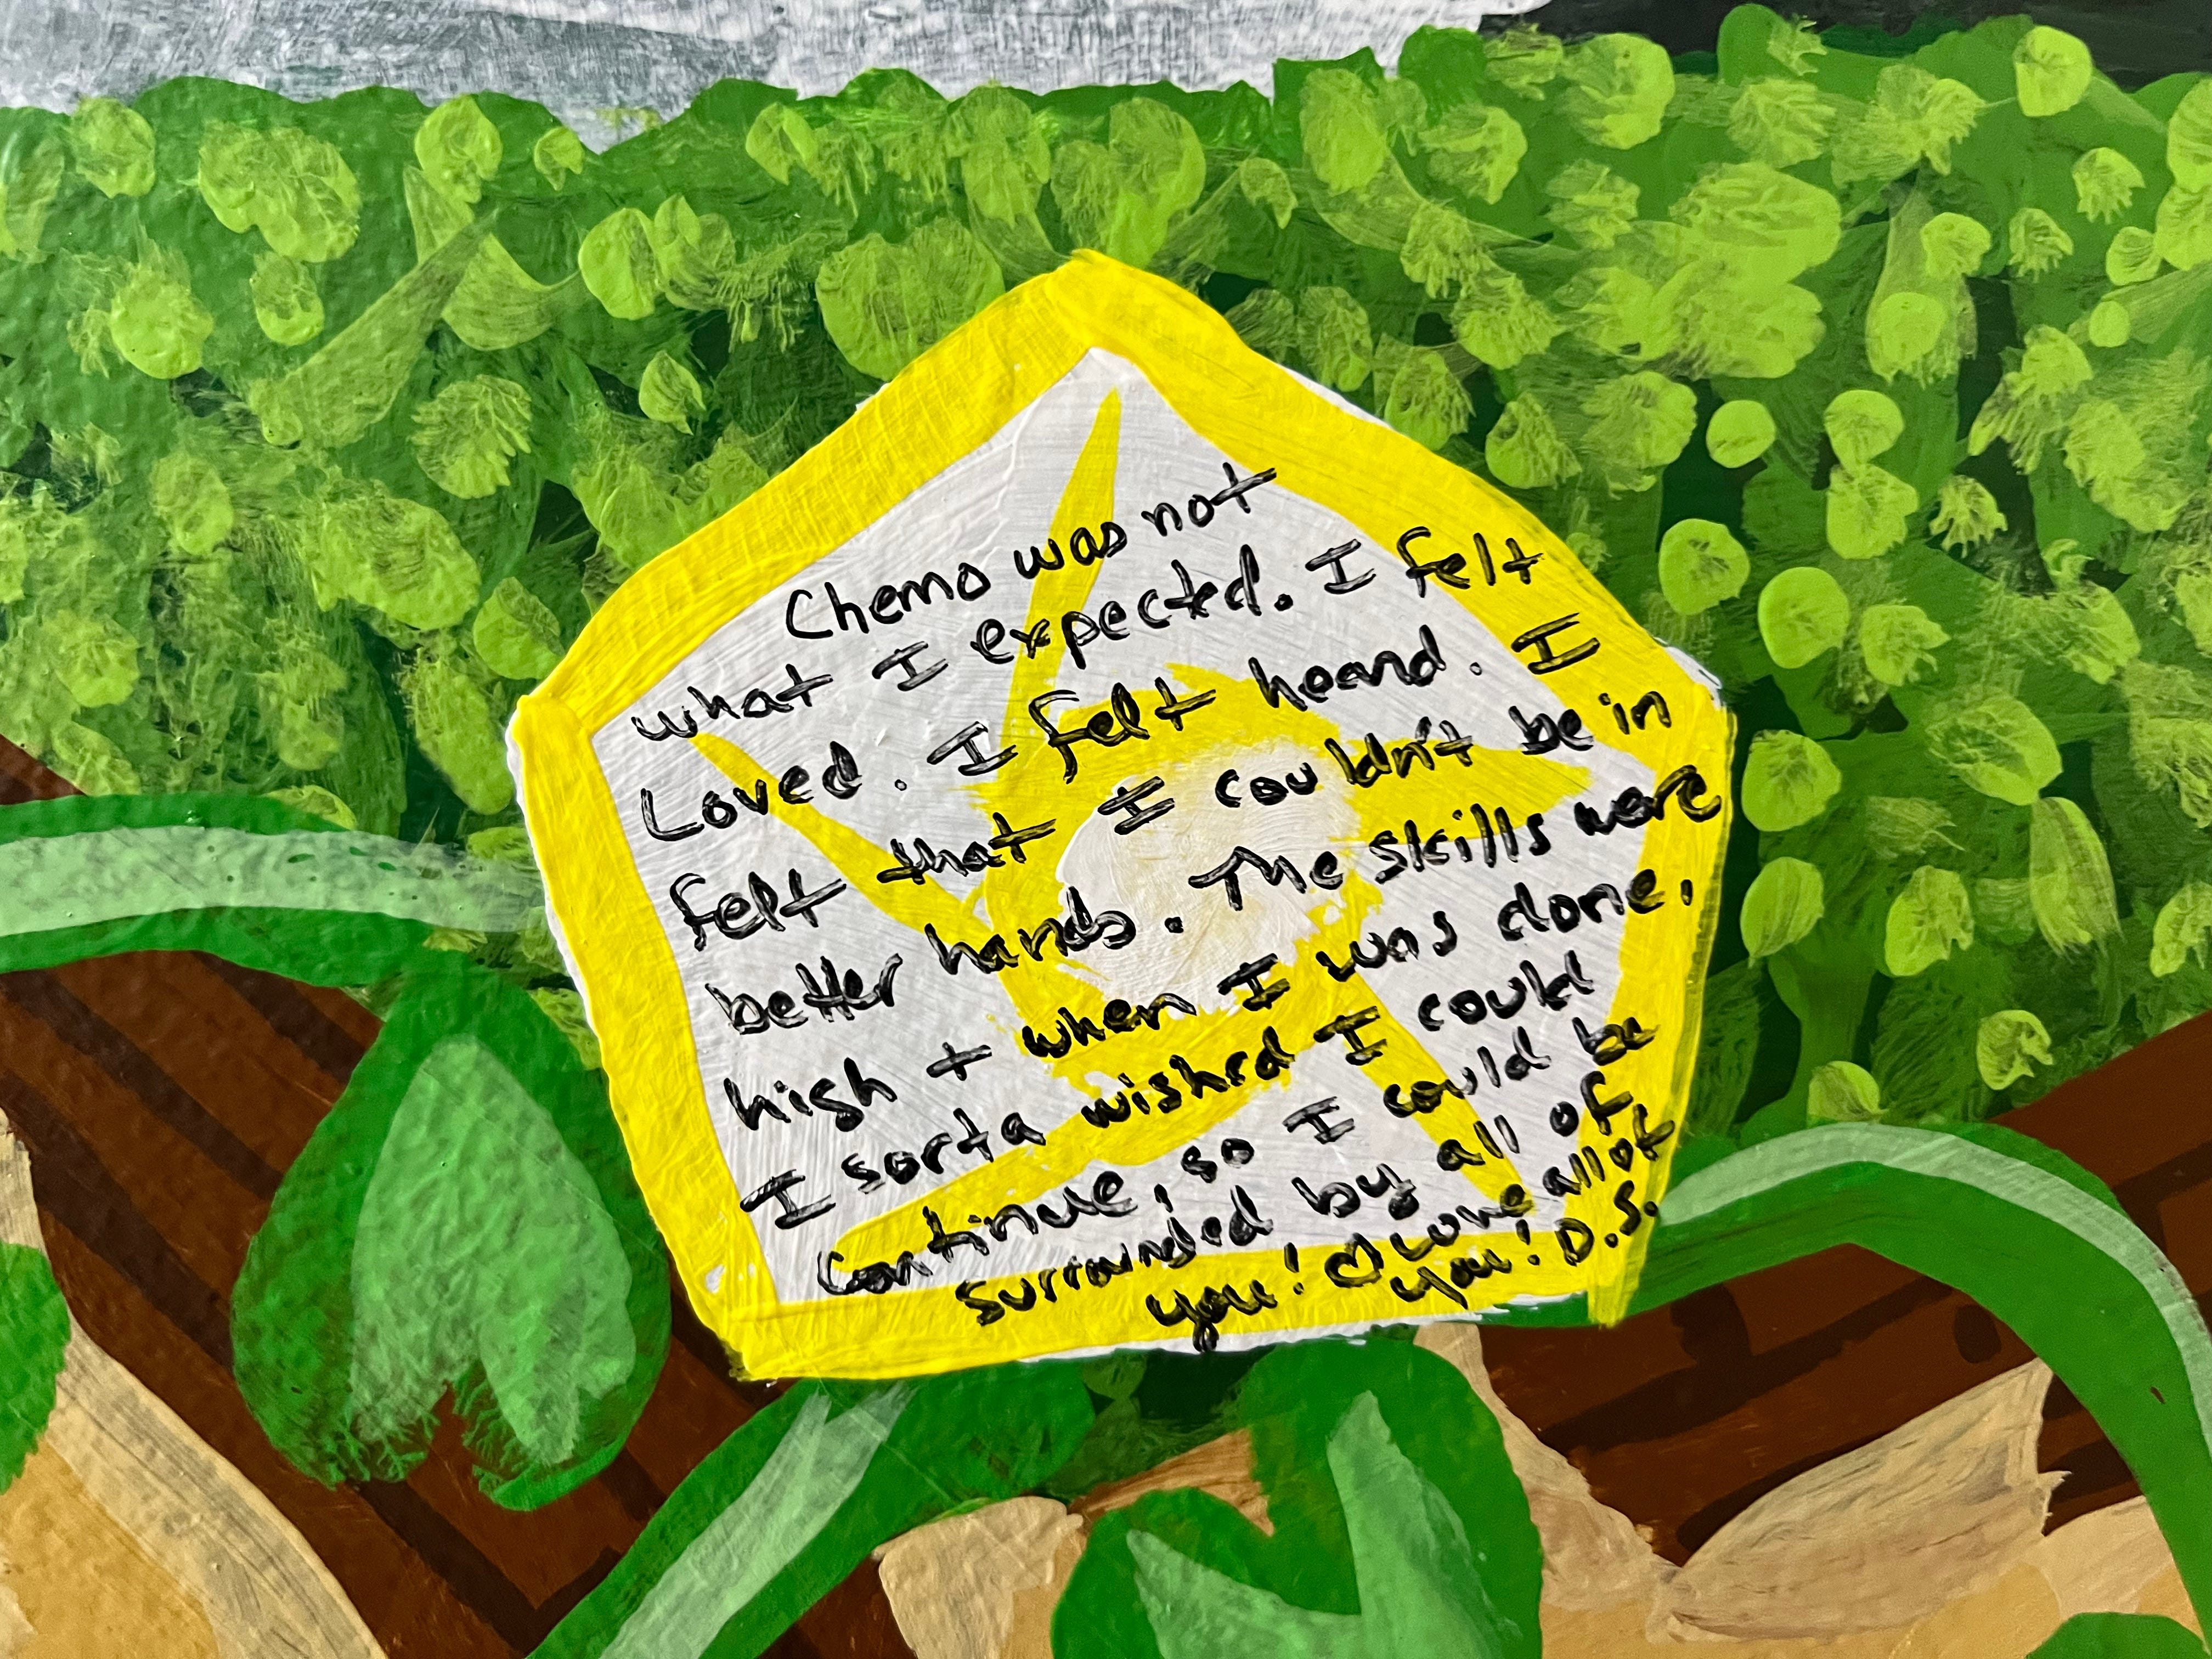 Chemo was not
what I expected. I felt
Loved. I felt heard. I
felt that I couldn't be in
better hands. The skills were
high + when I was done,
I sorta wished I could
continue, so I could be
surrounded by all of
you! ♡ Love allot
you! D.S.